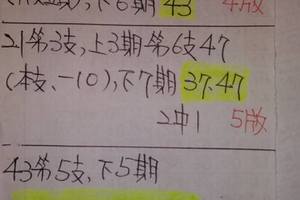 下6期 43 4版
21第3支,上3期第6支47
(本支、-10),下7期 37.47
2中1 5版
43第5支,下5期